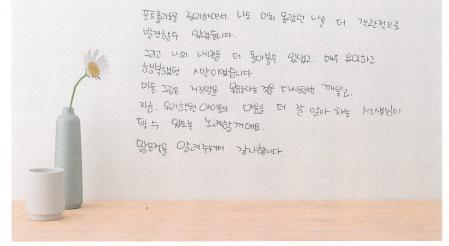 포트폴리오를 정리하면서 나도 미처 몰랐던 나를 더 객관적으로
발견할수 있었습니다.
그리고 나의 내면을 더 돌아볼수 있었고, 매우 유익하고
행복했던 시간이었습니다.
미술, 그림은 거짓말을 못한다는 것을 다시한번 깨닫고,
지금, 우리학원 아이들의 마음을 더 잘 알아 채는 선생님이
될 수 있도록 노력할꺼예요.
많은것을 알려주셔서 감사합니다.